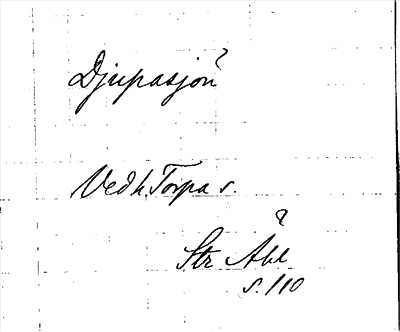 Djupasjön
Vedh. Torpa s.
Str Åhl
s. 110